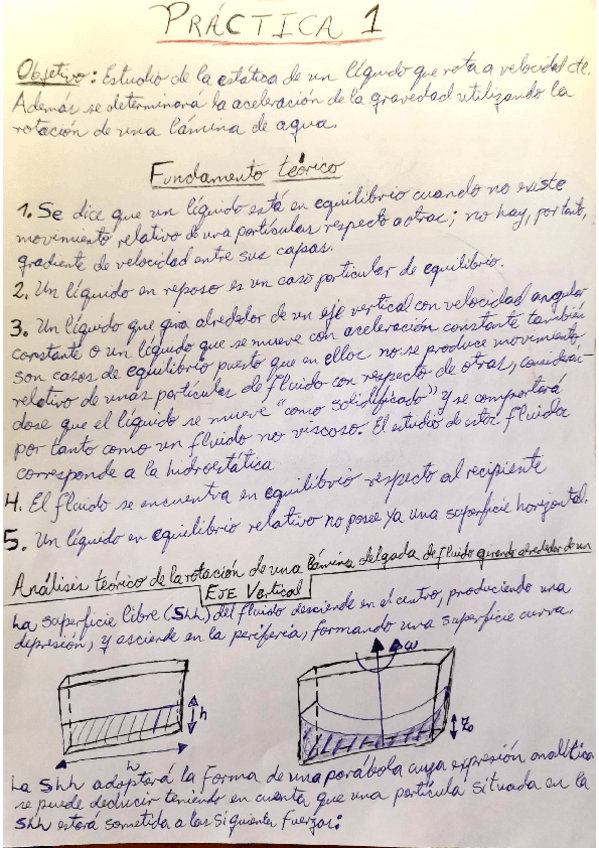 PRÁCTICA 1
Objetivo: Estudio de la estática de un líquido que rota a velocidad cte.
Además se determinará la aceleración de la gravedad utilizando la
rotación de una lámina de agua.
Fundamento teórico
1. Se dice que un líquido está en equilibrio cuando no existe
movimiento relativo de una partículas respecto a otras; no hay, por tanto,
gradiente de velocidad entre sus capas.
2. Un líquido en reposo es un caso particular de equilibrio.
3. Un líquido que gira alrededor de un eje vertical con velocidad angular
constante o un líquido que se mueve con aceleración constante también
son casos de equilibrio puesto que en ellos no se produce movimiento
relativo de unas partículas de fluido con respecto de otras, considerán-
dose que el líquido se mueve "como solidificado" y se comportará
por tanto como un fluido no viscoso. El estudio de estos fluidos
corresponde a la hidrostática
4. El fluido se encuentra en equilibrio respecto al recipiente
5. Un líquido en equilibrio relativo no posee ya una superficie horizontal.
Análisis teórico de la rotación de una lámina delgada de fluido girando alrededor de un
EJE Vertical
La superficie libre (Shh) del fluido desciende en el centro, produciendo una
depresión, y asciende en la periferia, formando una superficie curva.
ω
h
Z₀
La Shh adoptará la forma de una parábola cuya expresión analítica
se puede deducir teniendo en cuenta que una partícula situada en la
Shh estará sometida a las siguientes fuerzas: